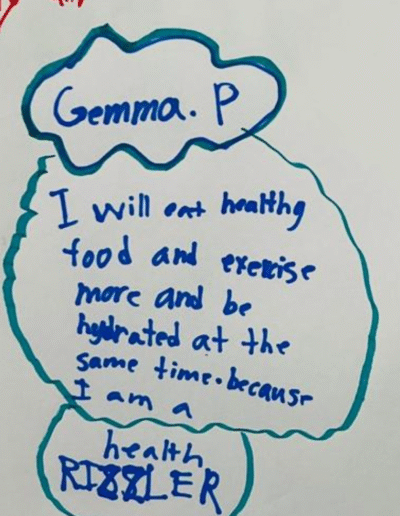 Gemma. P
I will eat healthy
food and exercise
more and be
hydrated at the
same time. because
I am a
health
RIZZLER